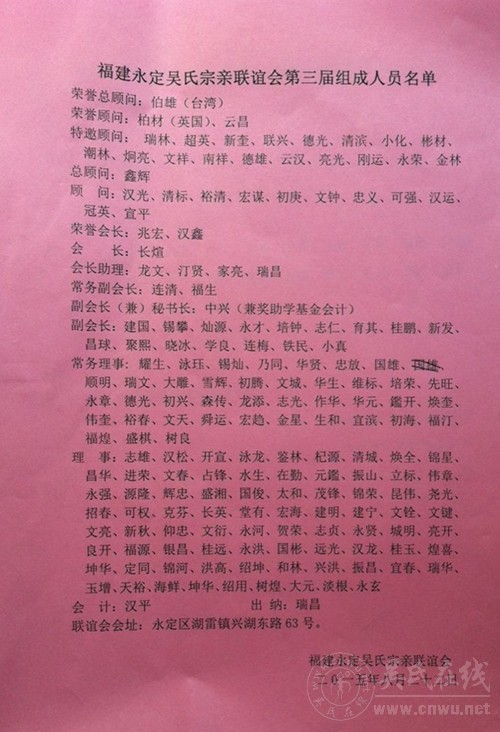 福建永定吴氏宗亲联谊会第三届组成人员名单
荣誉总顾问：伯雄（台湾）
荣誉顾问：柏材（英国）、云昌
特邀顾问： 瑞林、超英、新奎、联兴、德光、清滨、小化、彬材、
潮林、炯亮、文祥、南祥、德雄、云汉、亮光、刚运、永荣、金林
总顾问：鑫辉
顾 问：汉光、清标、裕清、宏谋、初庚、文钟、忠义、可强、汉运、
冠英、宣平
荣誉会长：兆宏、汉鑫
会 长：长煊
会长助理：龙文、汀贤、家亮、瑞昌
常务副会长：连清、福生
副会长（兼）秘书长：中兴（兼奖助学基金会计）
副会长：建国、锡攀、灿源、永才、培钟、志仁、育其、桂鹏、新发、
昌球、聚熙、晓冰、学良、连梅、铁民、小真
常务理事：耀生、泳珏、锡灿、乃同、华贤、忠放、国雄、
顺明、瑞文、大雕、雪辉、初腾、文城、华生、维标、培荣、先旺、
永章、德光、初兴、森传、龙添、志光、作华、华元、鑑开、焕奎、
伟奎、裕春、文天、舜运、宏趋、金星、生和、宜滨、初海、福汀、
福煌、盛棋、树良
理 事：志雄、汉松、开宣、泳龙、鉴林、杞源、清城、焕全、锦星、
昌华、进荣、文春、占锋、水生、在勤、元鑑、振山、立标、伟章、
永强、源隆、辉忠、盛湘、国俊、太和、茂锋、锦荣、昆伟、尧光、
招春、可权、克芬、长英、堂有、宏海、建明、建宁、文铨、文键、
文亮、新秋、仰忠、文衍、永河、贺荣、志贞、永贤、城明、亮开、
良开、福源、银昌、桂远、永洪、国彬、远光、汉龙、桂玉、煌喜、
坤华、定同、锦河、洪高、绍坤、和林、兴洪、振昌、宜春、瑞华、
玉增、天裕、海鲜、坤华、绍用、树煌、大元、淡根、永玄
会 计：汉平 出 纳：瑞昌
联谊会会址：永定区湖雷镇兴湖东路63号。
福建永定吴氏宗亲联谊会
二〇一五年八月二十二日
吴氏在线
www.cnwu.net